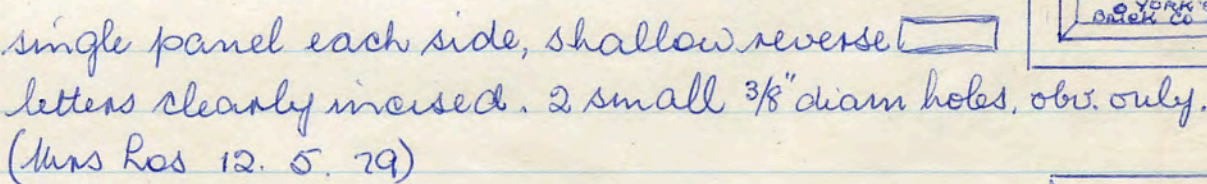 YORK
BRICK CO
single panel each side, shallow reverse
letters clearly incised. 2 small 3/8" diam holes, obv. only.
( has 12. 5. 79)